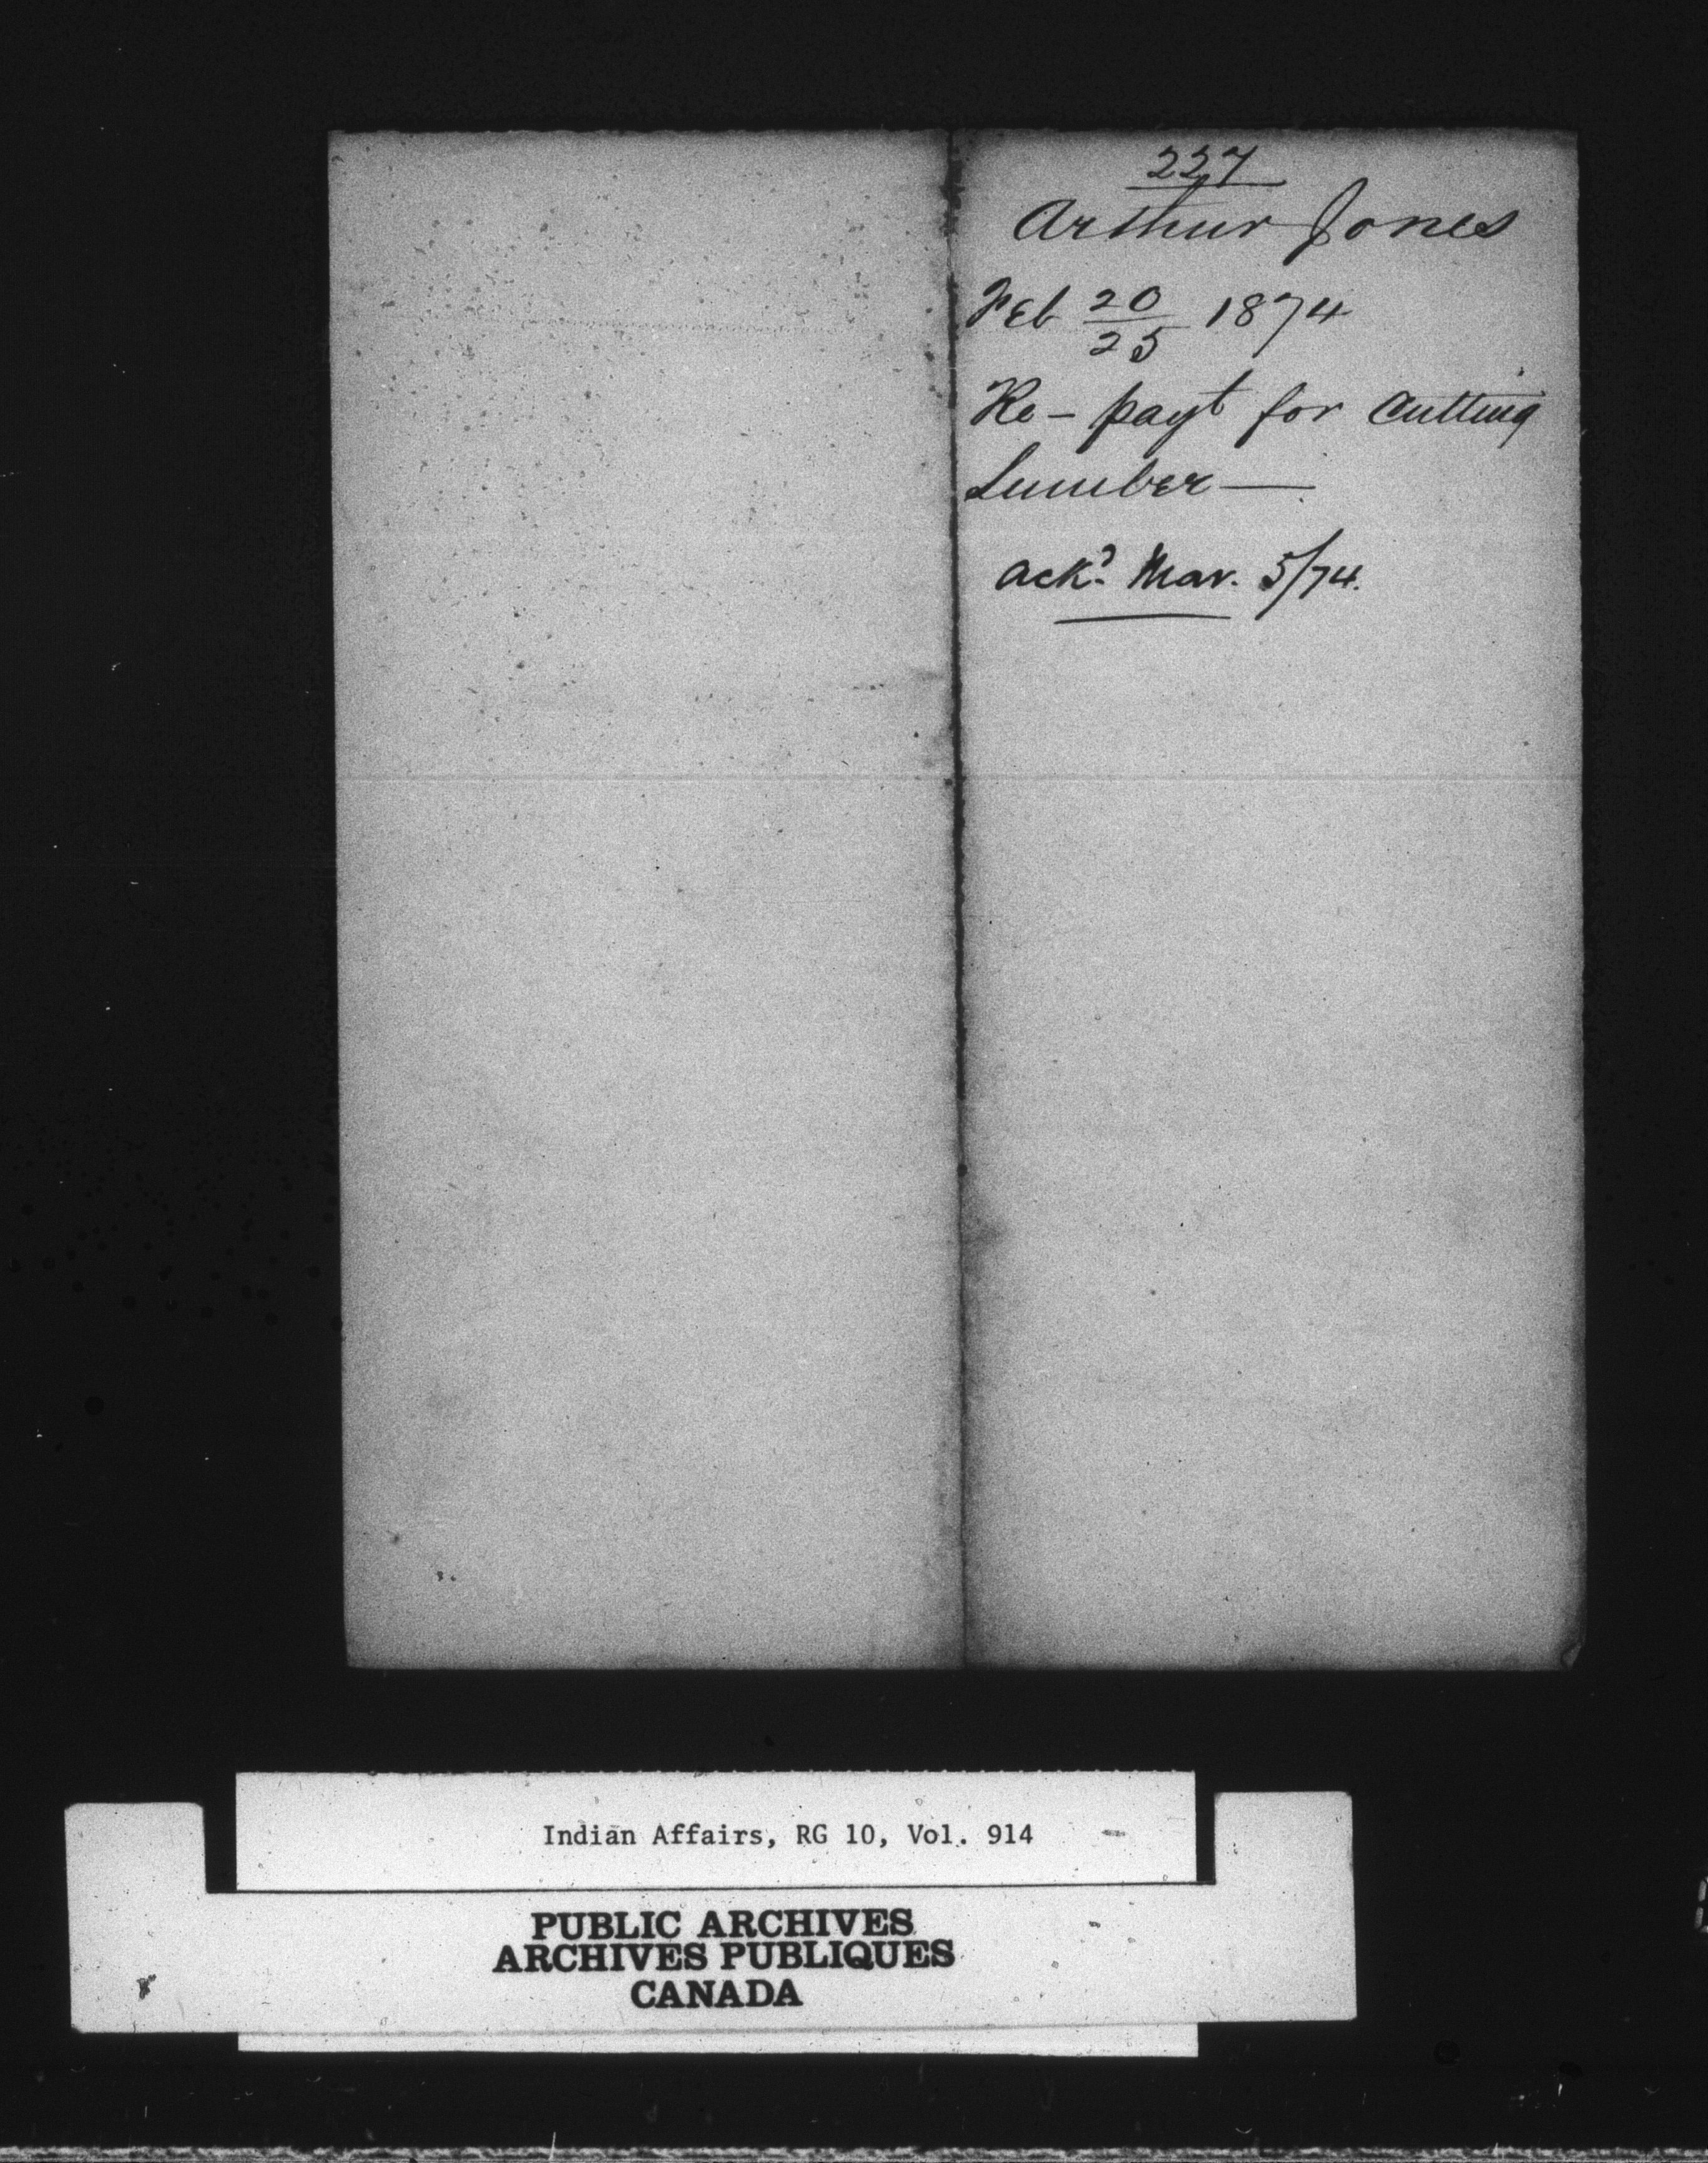 227
Arthur Jones
Feb 20/25 1874
Re - payt for Cutting
Lumber —
ackd. Mar. 5/74.
Indian Affairs, RG 10, Vol. 914
PUBLIC ARCHIVES
ARCHIVES PUBLIQUES
CANADA